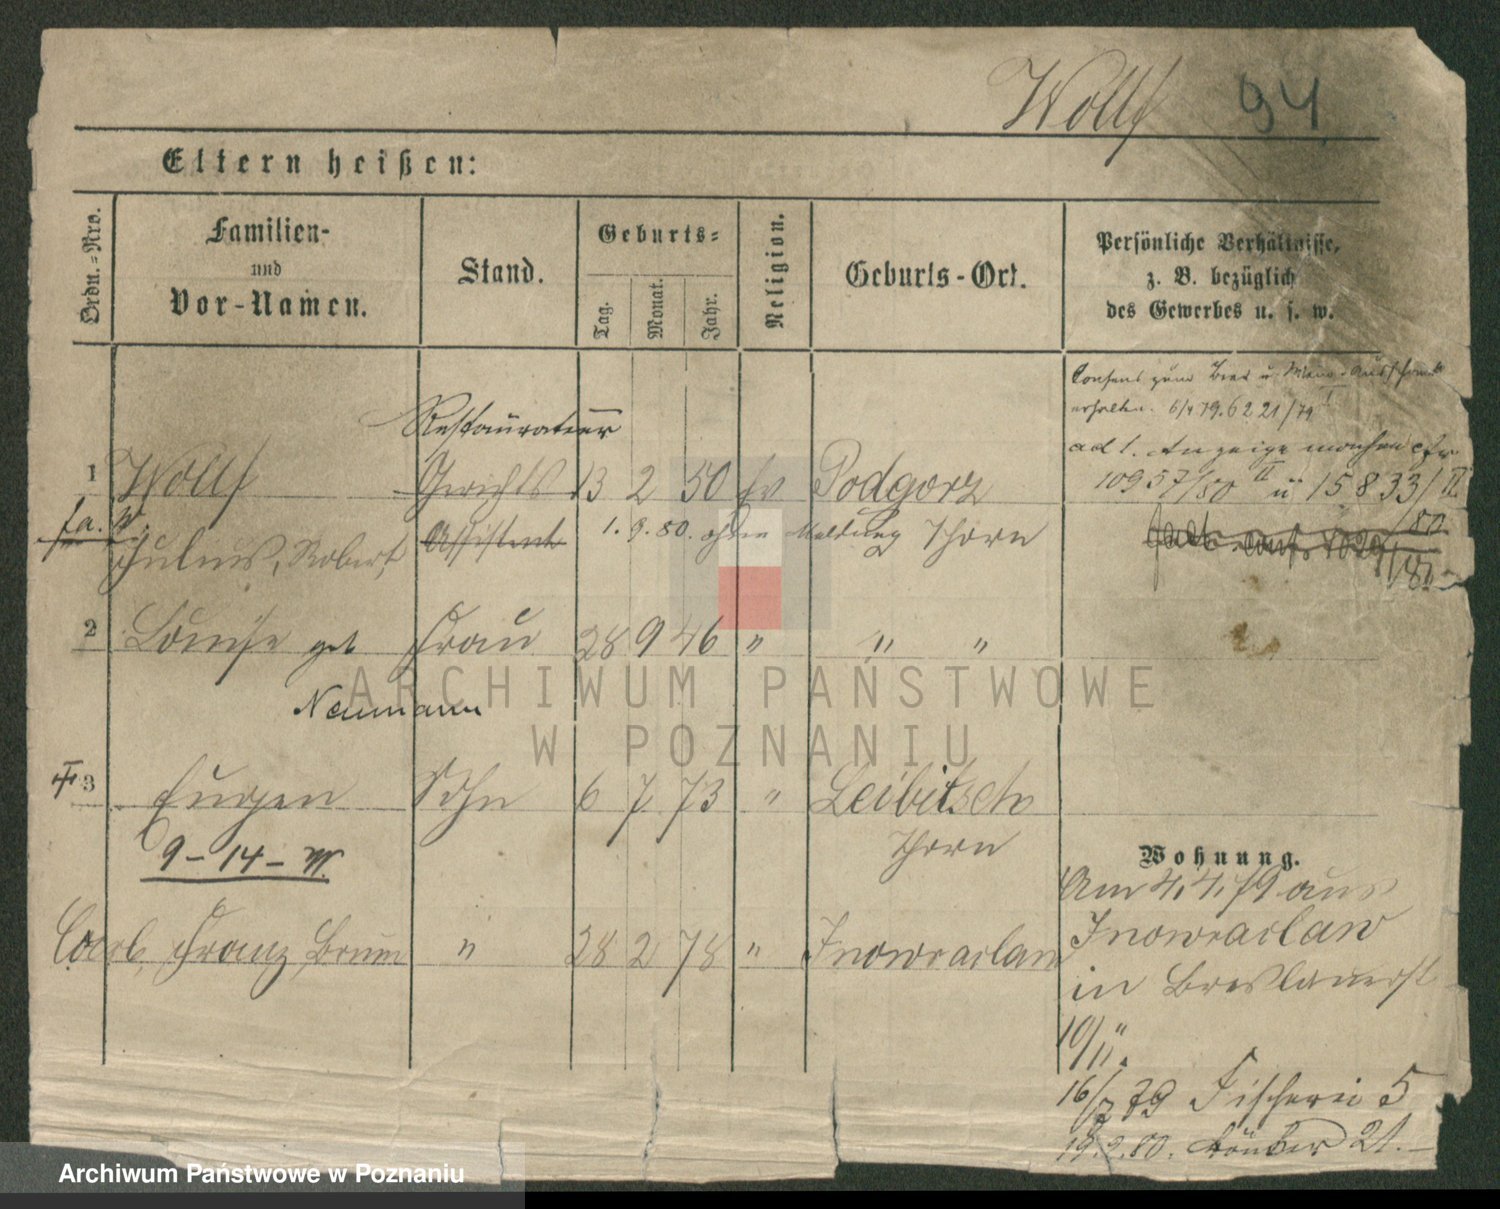 Wolff 94
Eltern heißen:
Ordn.=Nro.
Familien-
und
Vor-Namen.
Stand.
Geburts=
Tag.
Monat.
Jahr.
Religion.
Geburts-Ort.
Persönliche Verhältnisse,
z. B. bezüglich
des Gewerbes u. s. w.
Consens zum Bier u Wein-Ausschank
erhalten. 6/4 79. 6221/79 I
Restaurateur
ad 1. Anzeige
1 Wolff Gerichts 13 2 50 Ev Podgorz
10957/80 II ü 15833/II
80
fa. W.
Julius, Robert Assistent 1. 9. 80. ohne Meldung Thorn
2 Louise geb Frau 28 9 46 " " "
Neumann
3 Eugen Sohn 6 7 73 " Leibitsch
Thorn
9-14-W.
Wohnung.
Am 4.4.79 aus
Franz " 28 2 78 " Inowraclaw
Inowraclaw
in Breslauerst
10/11.
16/7 79 Fischerei 5
19.2.80. 21.
ARCHIWUM PAŃSTWOWE
W POZNANIU
Archiwum Państwowe w Poznaniu